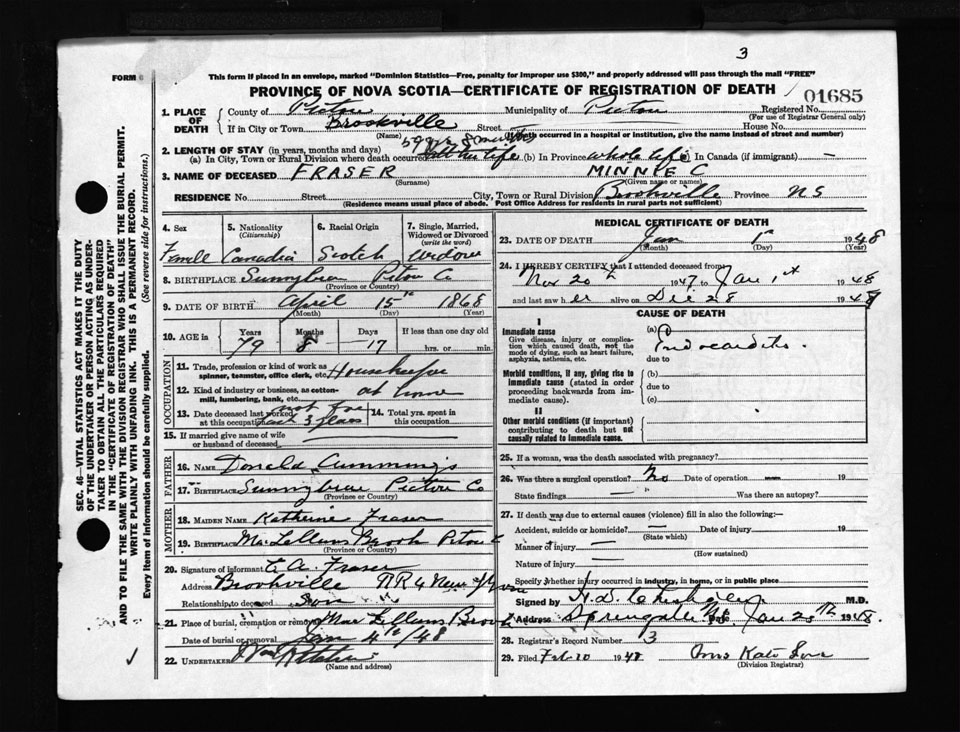 3
FORM 6
This form if placed in an envelope, marked "Dominion Statistics—Free, penalty for improper use $300," and properly addressed will pass through the mail "FREE"
PROVINCE OF NOVA SCOTIA—CERTIFICATE OF REGISTRATION OF DEATH
01685
1. PLACE OF DEATH County of Pictou Municipality of Pictou Registered No.
(For use of Registrar General only)
If in City or Town Brookville Street House No.
(Name) (If death occurred in a hospital or institution, give the name instead of street and number)
2. LENGTH OF STAY (in years, months and days) 59 yrs 8 months
(a) In City, Town or Rural Division where death occurred (b) In Province whole life (c) In Canada (if immigrant) —
3. NAME OF DECEASED FRASER MINNIE C
(Surname) (Given name or names)
RESIDENCE No. Street City, Town or Rural Division Brookville Province NS
(Residence means usual place of abode. Post Office Address for residents in rural parts not sufficient)
4. Sex 5. Nationality (Citizenship) 6. Racial Origin 7. Single, Married, Widowed or Divorced (write the word)
Female Canadia Scotch Widow
8. BIRTHPLACE Sunnybrae Pictou Co
(Province or County)
9. DATE OF BIRTH April 15th 1868
(Month) (Day) (Year)
10. AGE in Years Months Days If less than one day old
79 8 17 hrs. or min.
OCCUPATION
11. Trade, profession or kind of work as spinner, teamster, office clerk, etc. Housekeeper
12. Kind of industry or business, as cotton-mill, lumbering, bank, etc. at home
13. Date deceased last worked at this occupation not for last 3 years 14. Total yrs. spent in this occupation
15. If married give name of wife or husband of deceased
FATHER
16. NAME Donald Cummings
17. BIRTHPLACE Sunnybrae Pictou Co
(Province or County)
MOTHER
18. MAIDEN NAME Katherine Fraser
19. BIRTHPLACE McLellans Brook Pictou C
(Province or County)
20. Signature of informant C. A. Fraser
Address Brookville RR 4 New
Relationship to deceased son
21. Place of burial, cremation or removal MacLellans Brook
Date of burial or removal Jan 4th/48
22. UNDERTAKER
(Name and address)
MEDICAL CERTIFICATE OF DEATH
23. DATE OF DEATH Jan 1st 1948
(Month) (Day) (Year)
24. I HEREBY CERTIFY that I attended deceased from
Nov 20th 1947 to Jan 1st 1948
and last saw her alive on Dec 28 194
CAUSE OF DEATH
I
Immediate cause
Give disease, injury or complication which caused death, not the mode of dying, such as heart failure, asphyxia, asthenia, etc.
(a) Endocarditis.
due to
Morbid conditions, if any, giving rise to immediate cause (stated in order proceeding backwards from immediate cause).
(b)
due to
(c)
II
Other morbid conditions (if important) contributing to death but not causally related to immediate cause.
25. If a woman, was the death associated with pregnancy?
26. Was there a surgical operation? No Date of operation — 19
State findings — Was there an autopsy?
27. If death was due to external causes (violence) fill in also the following:
Accident, suicide or homicide? — Date of injury 19
(State which)
Manner of injury —
(How sustained)
Nature of injury —
Specify whether injury occurred in industry, in home, or in public place
Signed by M.D.
Address Jan 25th 1948.
28. Registrar's Record Number 3
29. Filed Feb 10 1948
(Division Registrar)
SEC. 46—VITAL STATISTICS ACT MAKES IT THE DUTY
OF THE UNDERTAKER OR PERSON ACTING AS UNDER-
TAKER TO OBTAIN ALL THE PARTICULARS REQUIRED
IN THE "CERTIFICATE OF REGISTRATION OF DEATH"
AND TO FILE THE SAME WITH THE DIVISION REGISTRAR WHO SHALL ISSUE THE BURIAL PERMIT.
WRITE PLAINLY WITH UNFADING INK. THIS IS A PERMANENT RECORD.
Every item of information should be carefully supplied. (See reverse side for instructions.)